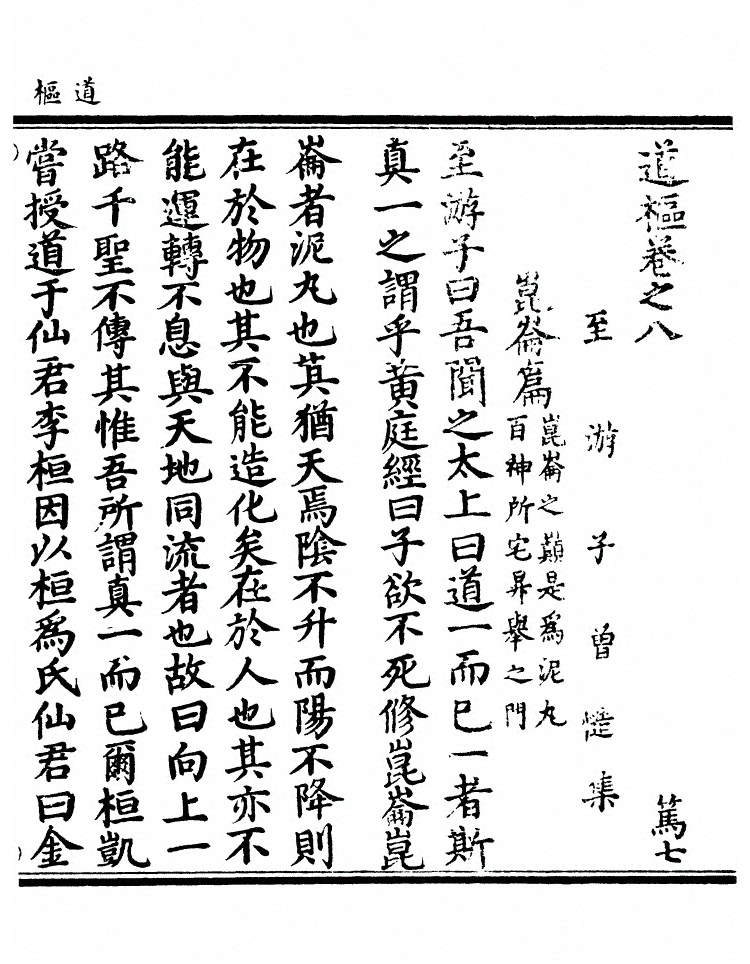 道樞
道樞卷之八
篤七
至游子曾慥集
崑崙篇
崑崙之巔是爲泥丸
百神所宅昇舉之門
至游子曰吾聞之太上曰道一而已一者斯
真一之謂乎黃庭經曰子欲不死修崑崙崑
崙者泥丸也其猶天焉陰不升而陽不降則
在於物也其不能造化矣在於人也其亦不
能運轉不息與天地同流者也故曰向上一
路千聖不傳其惟吾所謂真一而已爾桓凱
嘗授道于仙君李桓因以桓爲氏仙君曰金